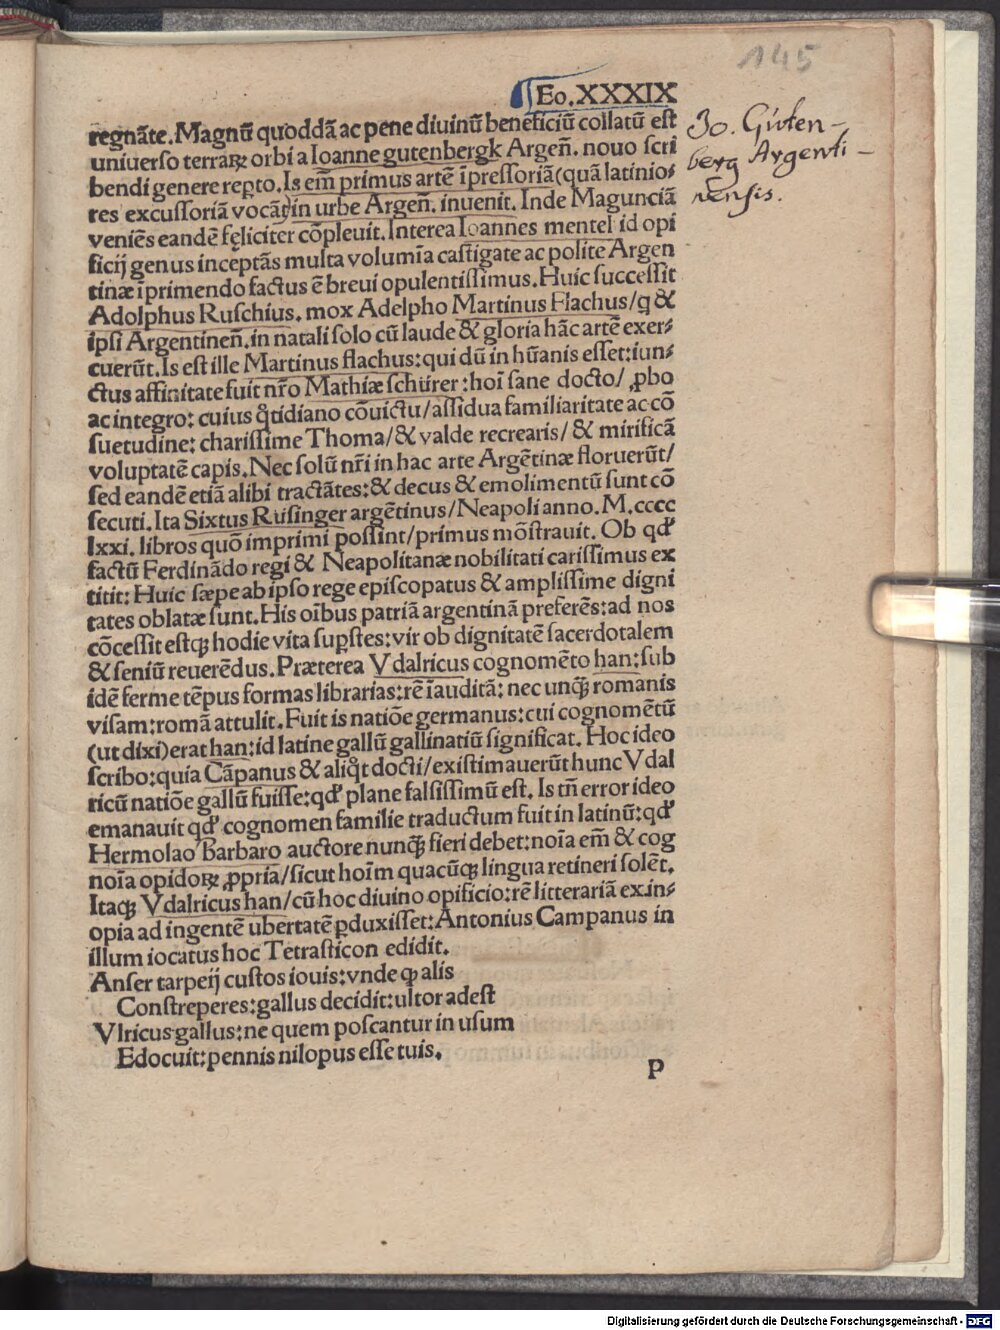 145
Fo. XXXIX
regnãte. Magnũ quoddã ac pene diuinũ beneficiũ collatũ est
uniuerso terraꝝ orbi a Ioanne gutenbergk Argeñ. nouo scri
bendi genere reꝑto. Is em̃ primus artẽ ĩpressoriã (quã latinio⸗
res excussoriã vocãt) in urbe Argeñ. inuenit. Inde Magunciã
veniẽs eandẽ fęliciter cõpleuit. Interea Ioannes mentel id opi
ficij genus inceptãs multa volumĩa castigate ac polite Argen
tinæ ĩprimendo factus ẽ breui opulentissimus. Huic successit
Adolphus Ruschius. mox Adelpho Martinus Flachus/ q̃ &
ipsi Argentineñ. in natali solo cũ laude & gloria hãc artẽ exer⸗
cuerũt. Is est ille Martinus flachus: qui dũ in hũanis esset: iun⸗
ctus affinitate fuit nr̃o Mathiæ schürer: hoĩ sane docto/ ꝓbo
ac integro: cuius q̊tidiano cõuictu/ assidua familiaritate ac cõ
suetudine: charissime Thoma/ & valde recrearis/ & mirificã
voluptatẽ capis. Nec solũ nr̃i in hac arte Argẽtinæ floruerũt/
sed eandẽ etiã alibi tractãtes: & decus & emolimentũ sunt cõ
secuti. Ita Sixtus Rusinger argẽtinus/ Neapoli anno. M.cccc
lxxi. libros quõ imprimi possint/ primus mõstrauit. Ob qđ
factũ Ferdinãdo regi & Neapolitanæ nobilitati carissimus ex
titit: Huic sæpe ab ipso rege episcopatus & amplissime digni
tates oblatæ sunt. His oĩbus patriã argentinã preferẽs: ad nos
cõcessit estqꝫ hodie vita sup̱stes: vir ob dignitatẽ sacerdotalem
& seniũ reuerẽdus. Præterea Vdalricus cognomẽto han: sub
idẽ ferme tẽpus formas librarias: rẽ ĩauditã: nec unqꝫ̃ romanis
visam: romã attulit. Fuit is natiõe germanus: cui cognomẽtũ
(ut dixi) erat han: id latine gallũ gallinatiũ significat. Hoc ideo
scribo: quia Cãpanus & aliq̊t docti/ existimauerũt hunc Vdal
ricũ natiõe gallũ fuisse: qđ plane falsissimũ est. Is tñ error ideo
emanauit qđ cognomen familie traductum fuit in latinũ: qđ
Hermolao Barbaro auctore nunqꝫ̃ fieri debet: noĩa em̃ & cog
noĩa opidoꝝ ꝓpria/ sicut hoĩm quacũqꝫ lingua retineri solẽt.
Itaqꝫ Vdalricus han/ cũ hoc diuino opificio: rẽ litterariã ex in⸗
opia ad ingentẽ ubertatẽ ꝑduxisset: Antonius Campanus in
illum iocatus hoc Tetrasticon edidit.
Anser tarpeij custos iouis: vnde qꝫ alis
Constreperes: gallus decidit: ultor adest
Vlricus gallus: ne quem poscantur in usum
Edocuit: pennis nil opus esse tuis.
p
Jo. Guten-
berg Argenti-
nensis.
Digitalisierung gefördert durch die Deutsche Forschungsgemeinschaft - DFG